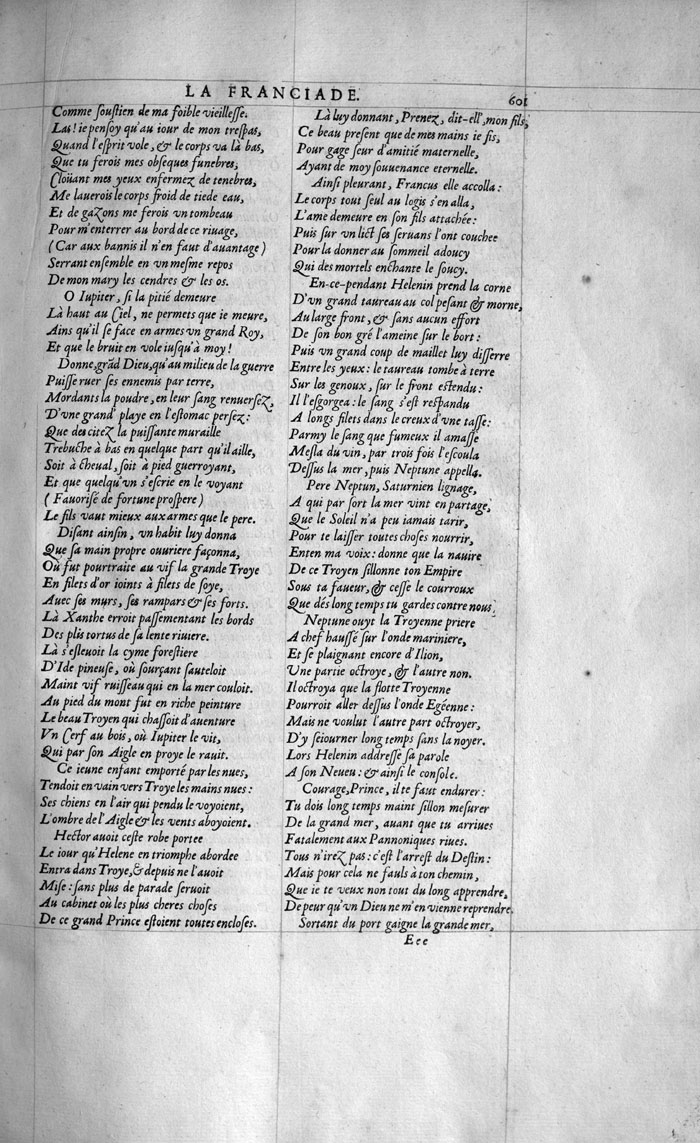 LA FRANCIADE.
601
Comme soustien de ma foible vieillesse.
Las! ie pensoy qu'au iour de mon trespas,
Quand l'esprit vole, & le corps va là bas,
Que tu ferois mes obseques funebres,
Cloüant mes yeux enfermez de tenebres,
Me lauerois le corps froid de tiede eau,
Et de gazons me ferois vn tombeau
Pour m'enterrer au bord de ce riuage,
(Car aux bannis il n'en faut d'auantage)
Serrant ensemble en vn mesme repos
De mon mary les cendres & les os.
O Iupiter, si la pitié demeure
Là haut au Ciel, ne permets que ie meure,
Ains qu'il se face en armes vn grand Roy,
Et que le bruit en vole iusqu'à moy!
Donne, grãd Dieu, qu'au milieu de la guerre
Puisse ruer ses ennemis par terre,
Mordants la poudre, en leur sang renuersez,
D'vne grand' playe en l'estomac persez:
Que des citez la puissante muraille
Trebuche à bas en quelque part qu'il aille,
Soit à cheual, soit à pied guerroyant,
Et que quelqu'vn s'escrie en le voyant
(Fauorisé de fortune prospere)
Le fils vaut mieux aux armes que le pere.
Disant ainsin, vn habit luy donna
Que sa main propre ouuriere façonna,
Où fut pourtraite au vif la grande Troye
En filets d'or ioints à filets de soye,
Auec ses murs, ses rampars & ses forts.
Là Xanthe erroit passementant les bords
Des plis tortus de sa lente riuiere.
Là s'esleuoit la cyme forestiere
D'Ide pineuse, où sourçant sauteloit
Maint vif ruisseau qui en la mer couloit.
Au pied du mont fut en riche peinture
Le beau Troyen qui chassoit d'auenture
Vn Cerf au bois, où Iupiter le vit,
Qui par son Aigle en proye le rauit.
Ce ieune enfant emporté par les nues,
Tendoit en vain vers Troye les mains nues:
Ses chiens en l'air qui pendu le voyoient,
L'ombre de l'Aigle & les vents aboyoient.
Hector auoit ceste robe portee
Le iour qu'Helene en triomphe abordee
Entra dans Troye, & depuis ne l'auoit
Mise: sans plus de parade seruoit
Au cabinet où les plus cheres choses
De ce grand Prince estoient toutes encloses.
Là luy donnant, Prenez, dit-ell', mon fils,
Ce beau present que de mes mains ie fis,
Pour gage seur d'amitié maternelle,
Ayant de moy souuenance eternelle.
Ainsi pleurant, Francus elle accolla:
Le corps tout seul au logis s'en alla,
L'ame demeure en son fils attachée:
Puis sur vn lict ses seruans l'ont couchee
Pour la donner au sommeil adoucy
Qui des mortels enchante le soucy.
En-ce-pendant Helenin prend la corne
D'vn grand taureau au col pesant & morne,
Au large front, & sans aucun effort
De son bon gré l'ameine sur le bort:
Puis vn grand coup de maillet luy disserre
Entre les yeux: le taureau tombe à terre
Sur les genoux, sur le front estendu:
Il l'esgorgea: le sang s'est respandu
A longs filets dans le creux d'vne tasse:
Parmy le sang que fumeux il amasse
Mesla du vin, par trois fois l'escoula
Dessus la mer, puis Neptune appella.
Pere Neptun, Saturnien lignage,
A qui par sort la mer vint en partage,
Que le Soleil n'a peu iamais tarir,
Pour te laisser toutes choses nourrir,
Enten ma voix: donne que la nauire
De ce Troyen sillonne ton Empire
Sous ta faueur, & cesse le courroux
Que dés long temps tu gardes contre nous.
Neptune ouyt la Troyenne priere
A chef haussé sur l'onde mariniere,
Et se plaignant encore d'Ilion,
Une partie octroye, & l'autre non.
Il octroya que la flotte Troyenne
Pourroit aller dessus l'onde Egéenne:
Mais ne voulut l'autre part octroyer,
D'y seiourner long temps sans la noyer.
Lors Helenin addresse sa parole
A son Neueu: & ainsi le console.
Courage, Prince, il te faut endurer:
Tu dois long temps maint sillon mesurer
De la grand mer, auant que tu arriues
Fatalement aux Pannoniques riues.
Tous n'irez pas: c'est l'arrest du Destin:
Mais pour cela ne fauls à ton chemin,
Que ie te veux non tout du long apprendre,
De peur qu'vn Dieu ne m'en vienne reprendre.
Sortant du port gaigne la grande mer,
Eee